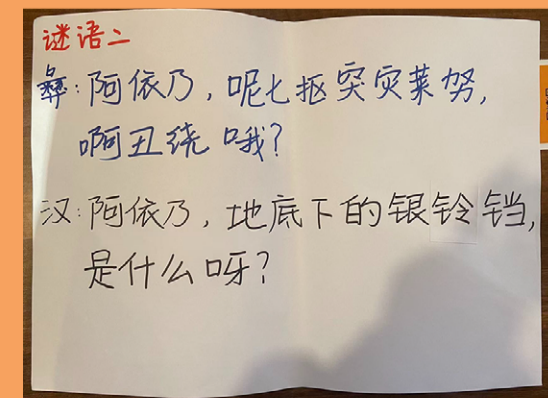 谜语二
彝:阿依乃,呢七抠突灾莱努,
啊丑绕哦?
汉:阿依乃,地底下的银铃铛,
是什么呀?